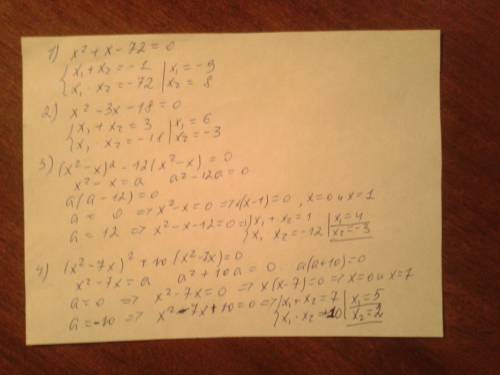 1) x² + x - 72 = 0
{ x₁ + x₂ = -1 | x₁ = -9
x₁ · x₂ = -72 | x₂ = 8
2) x² - 3x - 18 = 0
{ x₁ + x₂ = 3 | x₁ = 6
x₁ · x₂ = -18 | x₂ = -3
3) (x² - x)² - 12(x² - x) = 0
x² - x = a a² - 12a = 0
a(a - 12) = 0
a = 0 => x² - x = 0 => x(x-1) = 0, x = 0 и x = 1
a = 12 => x² - x - 12 = 0 => { x₁ + x₂ = 1 | x₁ = 4
x₁ x₂ = -12 | x₂ = -3
4) (x² - 7x)² + 10(x² - 7x) = 0
x² - 7x = a a² + 10a = 0 a(a+10) = 0
a = 0 => x² - 7x = 0 => x(x-7) = 0 => x = 0 и x = 7
a = -10 => x² - 7x + 10 = 0 => { x₁ + x₂ = 7 | x₁ = 5
x₁ · x₂ = 10 | x₂ = 2